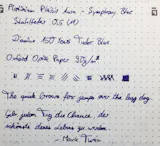 Platinum Plaisir Aura - Symphony Blue
Stahlfeder 0,5 (M)
Diamine 150 Years Tudor Blue
Oxford Optik Paper 90g/m²
The quick brown fox jumps over the lazy dog.
Gib jedem Tag die Chance, der
schönste deines Lebens zu werden.
- Mark Twain